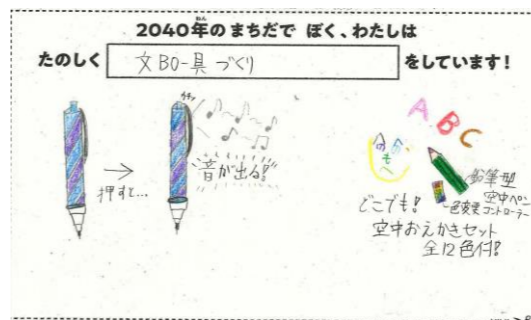 2040年のまちだで ぼく、わたしは
ねん
たのしく 文BO-具 づくり をしています!
カチッ
押すと...
音が出る!
A B C
へのへのもへ
鉛筆型
空中ペン
色変更コントローラー
どこでも!
空中おえかきセット
全12色付!